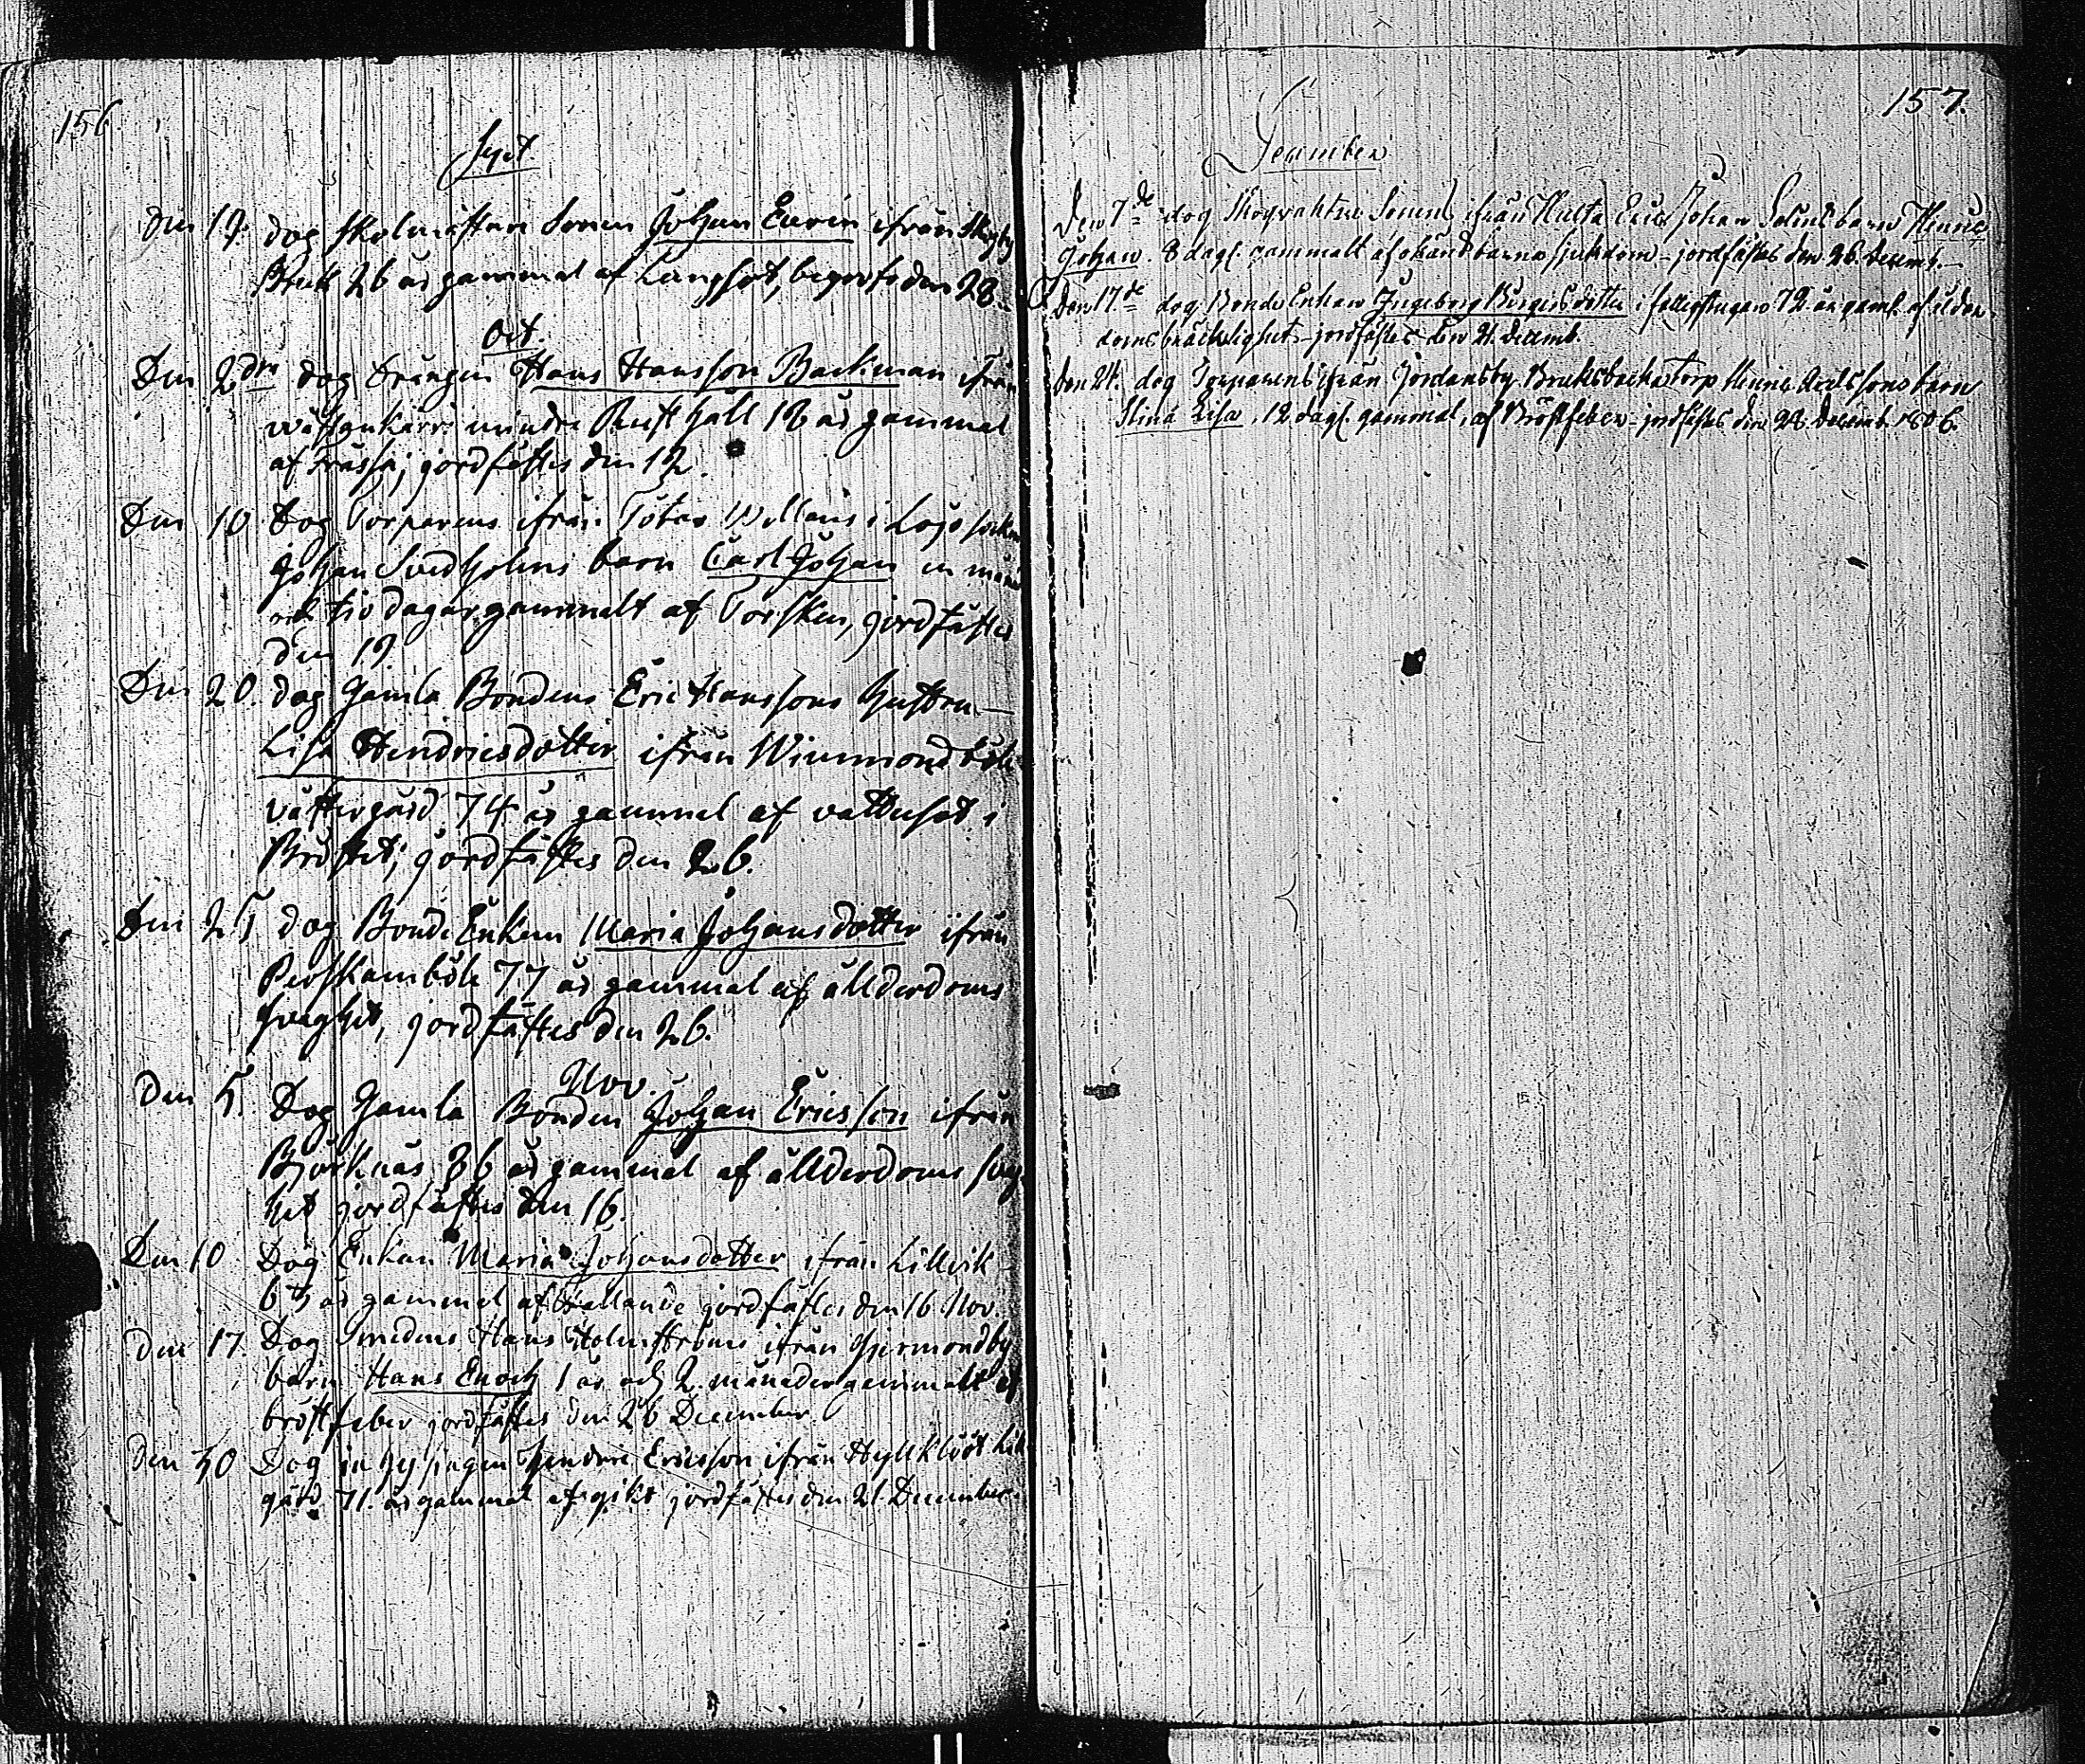 156
Sept.
Den 19. dog skolmästare Sonen Johan Eurén ifrån Skogby
Bruk 26 år gammal af Lungsot, begrofs den 28.
Oct.
Den 2dra dog Drängen Hans Hansson Backman ifrån
mindre Rusthåll 18 år gammal
af frässa; jordfästes den 12.
Den 10 Dog Torparens ifrån Nyllans i Lojo socken
Johan Svedholms barn Carl Johan en månad
och tio dagar gammalt af Torsken, jordfästes
den 19
Den 20. dog Gamla Bondens Eric Hanssons hustru
Lisa Hendricsdotter ifrån Wimmondböle
västergård 74 år gammal af vattusot i
Bröstet; jordfästes den 26.
Den 25 dog Bonde Enkan Maria Johansdotter ifrån
Perskamböle 77 år gammal af ållderdoms
svaghet, jordfästes den 26.
Nov.
Den 5. Dog Gamla Bonden Johan Ericsson ifrån
Björknäs 86 år gammal af ållderdoms svag
het jordfästes den 16.
Den 10 Dog Enkan Maria Johansdotter ifrån Lillvik
65 år gammal af jordfästes den 16 Nov.
Den 17. Dog Smedens Hans Holmströms ifrån Germundby
barn Hans Enoch 1 år och 2 månader gammalt af
bröstfeber jordfästes den 26 December
Den 30 Dog Inhysingen Hendric Ericsson ifrån Lill
gård 71. år gammal af gikt jordfästes den 21 December.
157.
December
Den 7de dog Skogvaktare ifrån Hulta Eric Johan barn Henric
Johan. 8 dagf. gammalt af okänd barna sjukdom - jordfästes den 26. Decemb.
Den 17de dog Bonde Enkan Ingeborg Birgersdotter i fattigstugan 72 år gaml. af ålder
doms bräcklighet - jordfästes den 21. Decemb.
Den 21. dog Torparens ifrån Jordansby Bruksbackatorp Henric Axelssons barn
Stina Lisa, 12 dagf. gammal, af Bröstfeber - jordfästes den 28. Decemb. 1806.